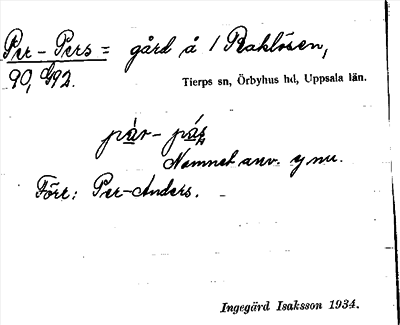 Per-Pers = gård å 1 Raklösen,
90, 92.
Tierps sn, Örbyhus hd, Uppsala län.
pàr - pás
Namnet anv. y nu.
Förr: Per-Anders.
Ingegärd Isaksson 1934.